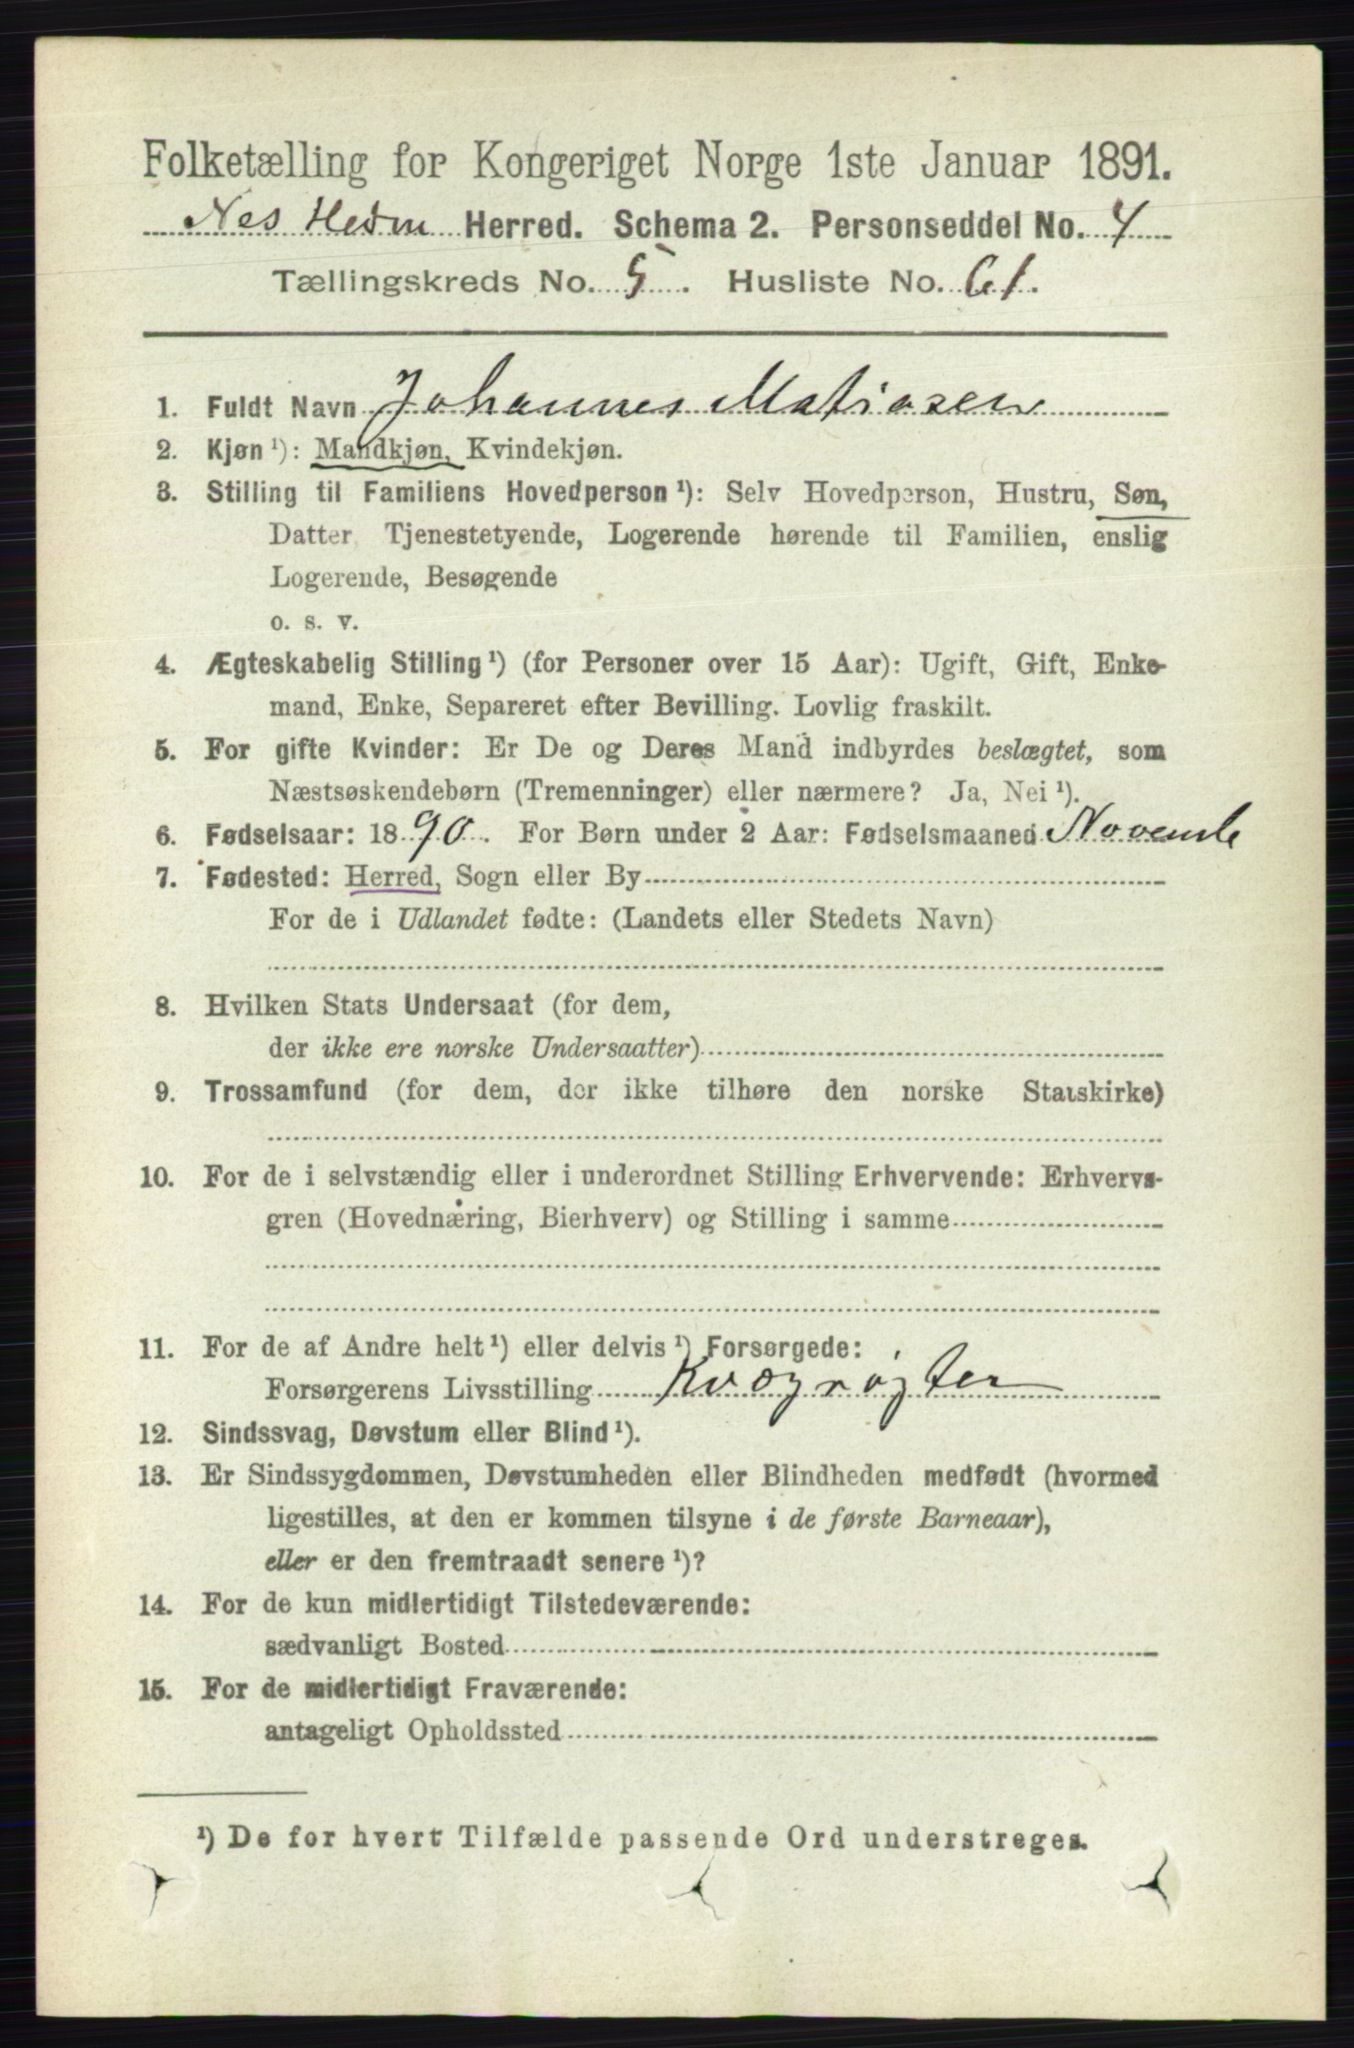 Folketælling for Kongeriget Norge 1ste Januar 1891.
Nes Hedm Herred. Schema 2. Personseddel No. 4
Tællingskreds No. 5. Husliste No. 61.
1. Fuldt Navn Johannes Matiasen
2. Kjøn ¹): Mandkjøn, Kvindekjøn.
3. Stilling til Familiens Hovedperson ¹): Selv Hovedperson, Hustru, Søn,
Datter, Tjenestetyende, Logerende hørende til Familien, enslig
Logerende, Besøgende
o. s. v.
4. Ægteskabelig Stilling ¹) (for Personer over 15 Aar): Ugift, Gift, Enke-
mand, Enke, Separeret efter Bevilling. Lovlig fraskilt.
5. For gifte Kvinder: Er De og Deres Mand indbyrdes beslægtet, som
Næstsøskendebørn (Tremenninger) eller nærmere? Ja, Nei ¹).
6. Fødselsaar: 1890. For Børn under 2 Aar: Fødselsmaaned Novembe
7. Fødested: Herred, Sogn eller By
For de i Udlandet fødte: (Landets eller Stedets Navn)
8. Hvilken Stats Undersaat (for dem,
der ikke ere norske Undersaatter)
9. Trossamfund (for dem, der ikke tilhøre den norske Statskirke)
10. For de i selvstændig eller i underordnet Stilling Erhvervende: Erhvervs-
gren (Hovednæring, Bierhverv) og Stilling i samme
11. For de af Andre helt ¹) eller delvis ¹) Forsørgede:
Forsørgerens Livsstilling Kvægrøgter
12. Sindssvag, Døvstum eller Blind ¹).
13. Er Sindssygdommen, Døvstumheden eller Blindheden medfødt (hvormed
ligestilles, at den er kommen tilsyne i de første Barneaar),
eller er den fremtraadt senere ¹)?
14. For de kun midlertidigt Tilstedeværende:
sædvanligt Bosted
15. For de midlertidigt Fraværende:
antageligt Opholdssted
¹) De for hvert Tilfælde passende Ord understreges.